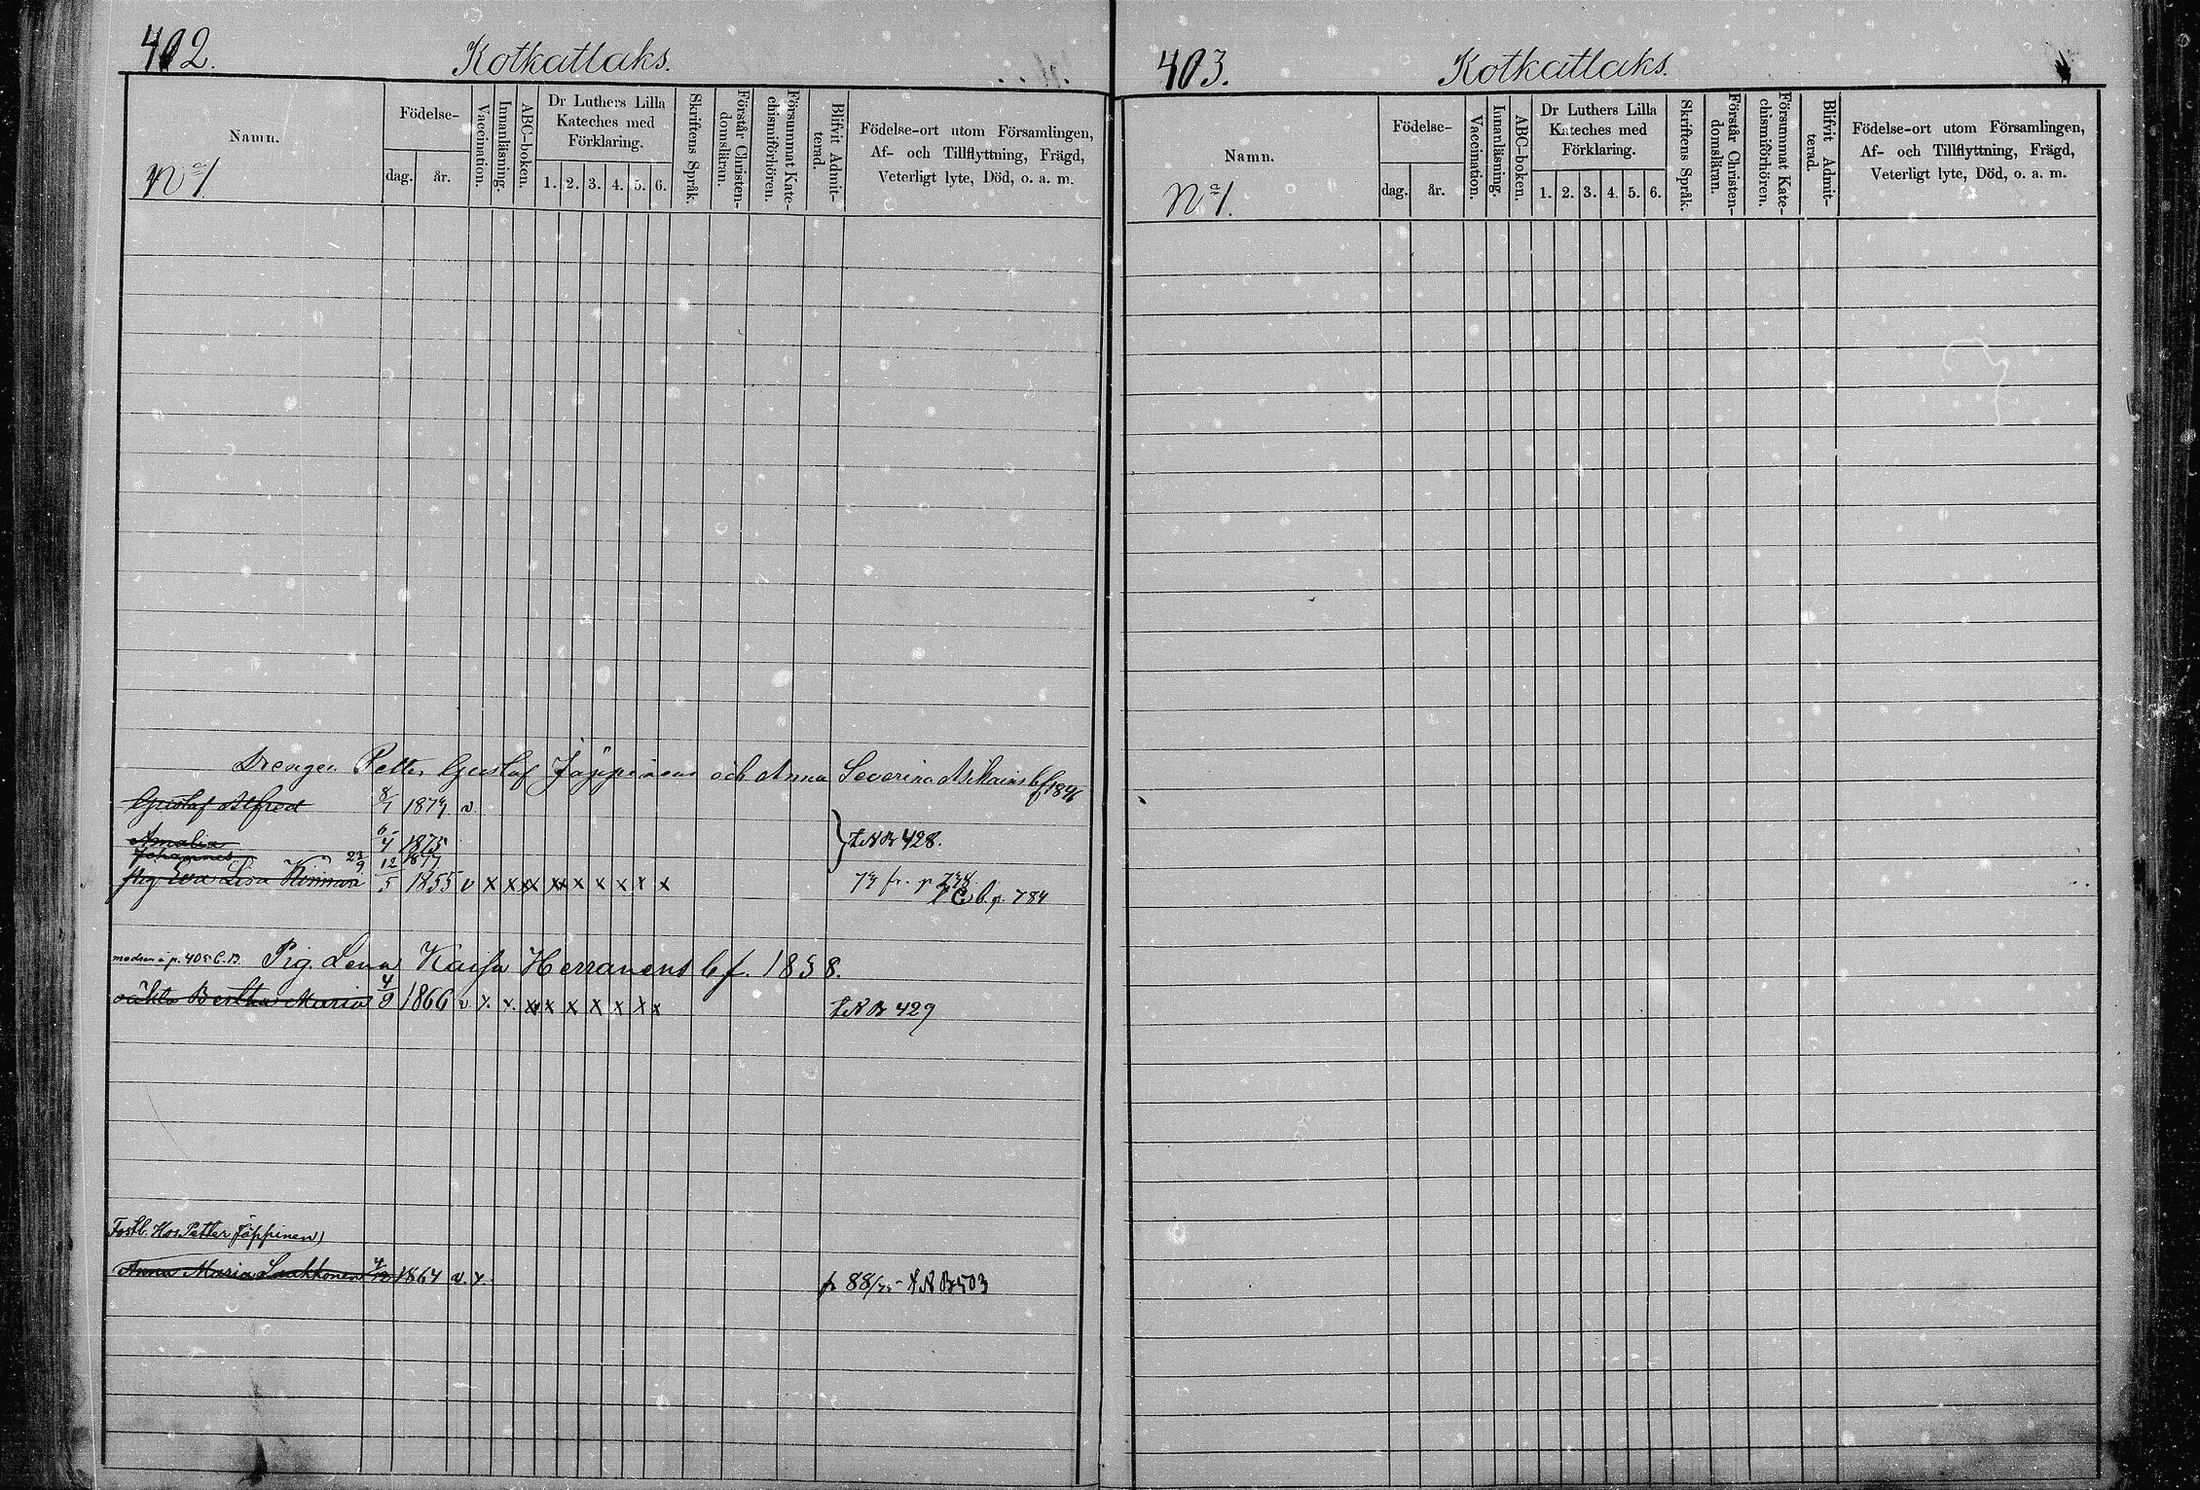 402.
Kotkatlaks.
Namn.
Nº 1
Födelse-
dag.
år.
Vaccination.
Innanläsning.
ABC-boken.
Dr Luthers Lilla
Kateches med
Förklaring.
1. 2. 3. 4. 5. 6.
Skriftens Språk.
Förstår Christen-
domsläran.
Försummat Kate-
chismiförhören.
Blifvit Admit-
terad.
Födelse-ort utom Församlingen,
Af- och Tillflyttning, Frägd,
Veterligt lyte, Död, o. a. m.
Drengen Petter Gustaf Jäppinens och Anna Severina Asikains bf 1846
Gustaf Alfred 8/1 1874 v
Amalia 6/4 1875 } LNB 428.
Johannes 23/9 1877
Pig. Eva Lisa 12/5 1855 v x x x x x x x x x x 79 fr. p
Cb. p. 784
modren i p. 405 C.B. Pig. Lena Kaisa Herranens bf. 1858.
oäkta Bertha Maria 4/9 1866 v x x x x x x x x x x LNB 429
Hos Petter Jäppinen
Anna Maria Laukkonen 1864 v. x. p 88 LNB 503
403.
Kotkatlaks.
Namn.
Nº 1.
Födelse-
dag.
år.
Vaccination.
Innanläsning.
ABC-boken.
Dr Luthers Lilla
Kateches med
Förklaring.
1. 2. 3. 4. 5. 6.
Skriftens Språk.
Förstår Christen-
domsläran.
Försummat Kate-
chismiförhören.
Blifvit Admit-
terad.
Födelse-ort utom Församlingen,
Af- och Tillflyttning, Frägd,
Veterligt lyte, Död, o. a. m.